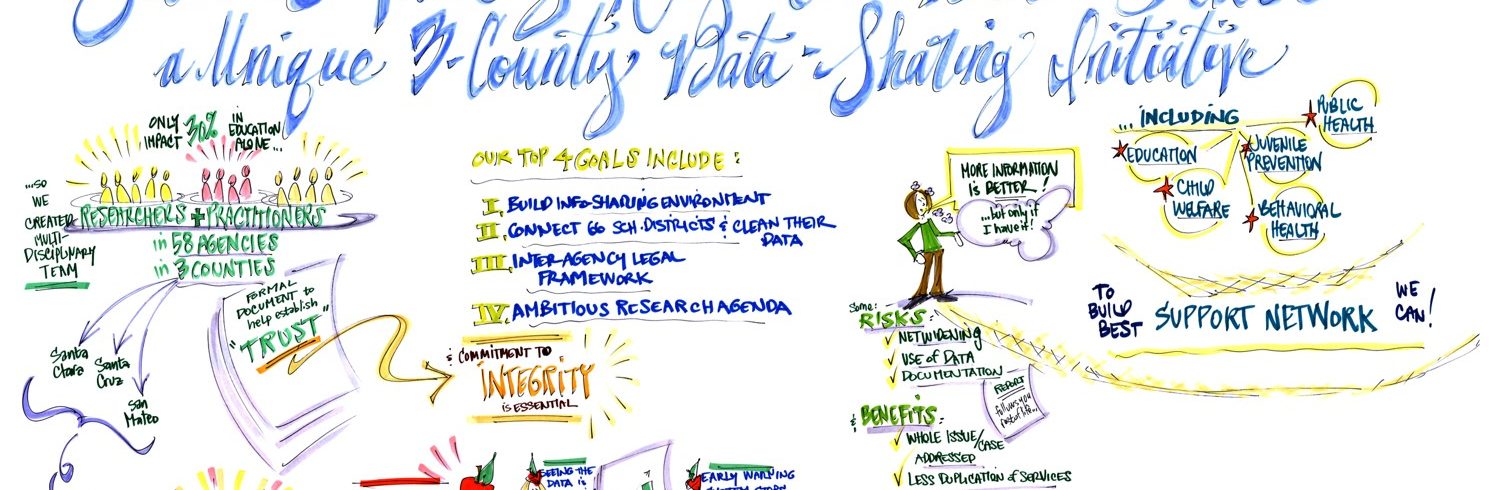 a Unique 3-County Data-Sharing Initiative
ONLY IMPACT 30% IN EDUCATION ALONE...
...SO
WE
CREATED
MULTI-
DISCIPLINARY
TEAM
RESEARCHERS + PRACTITIONERS
in 58 AGENCIES
in 3 COUNTIES
Santa
Clara
Santa
Cruz
San
Mateo
FORMAL
DOCUMENT to
help establish
"TRUST"
OUR TOP 4 GOALS INCLUDE:
I. BUILD INFO-SHARING ENVIRONMENT
II. CONNECT 66 SCH. DISTRICTS & CLEAN THEIR
DATA
III. INTERAGENCY LEGAL
FRAMEWORK
IV. AMBITIOUS RESEARCH AGENDA
& COMMITMENT TO
INTEGRITY
IS ESSENTIAL
MORE INFORMATION
IS BETTER!
...but only if
I have it!
Some:
RISKS:
✓ NETWIDENING
✓ USE of DATA
✓ DOCUMENTATION
REPORT
follows you
rest of life...
& BENEFITS:
✓ WHOLE ISSUE/CASE
ADDRESSED
✓ LESS DUPLICATION of SERVICES
...INCLUDING
PUBLIC
HEALTH
EDUCATION
JUVENILE
PREVENTION
CHILD
WELFARE
BEHAVIORAL
HEALTH
TO
BUILD
BEST
SUPPORT NETWORK
WE
CAN!
SEEING THE
DATA IS
EARLY WARNING